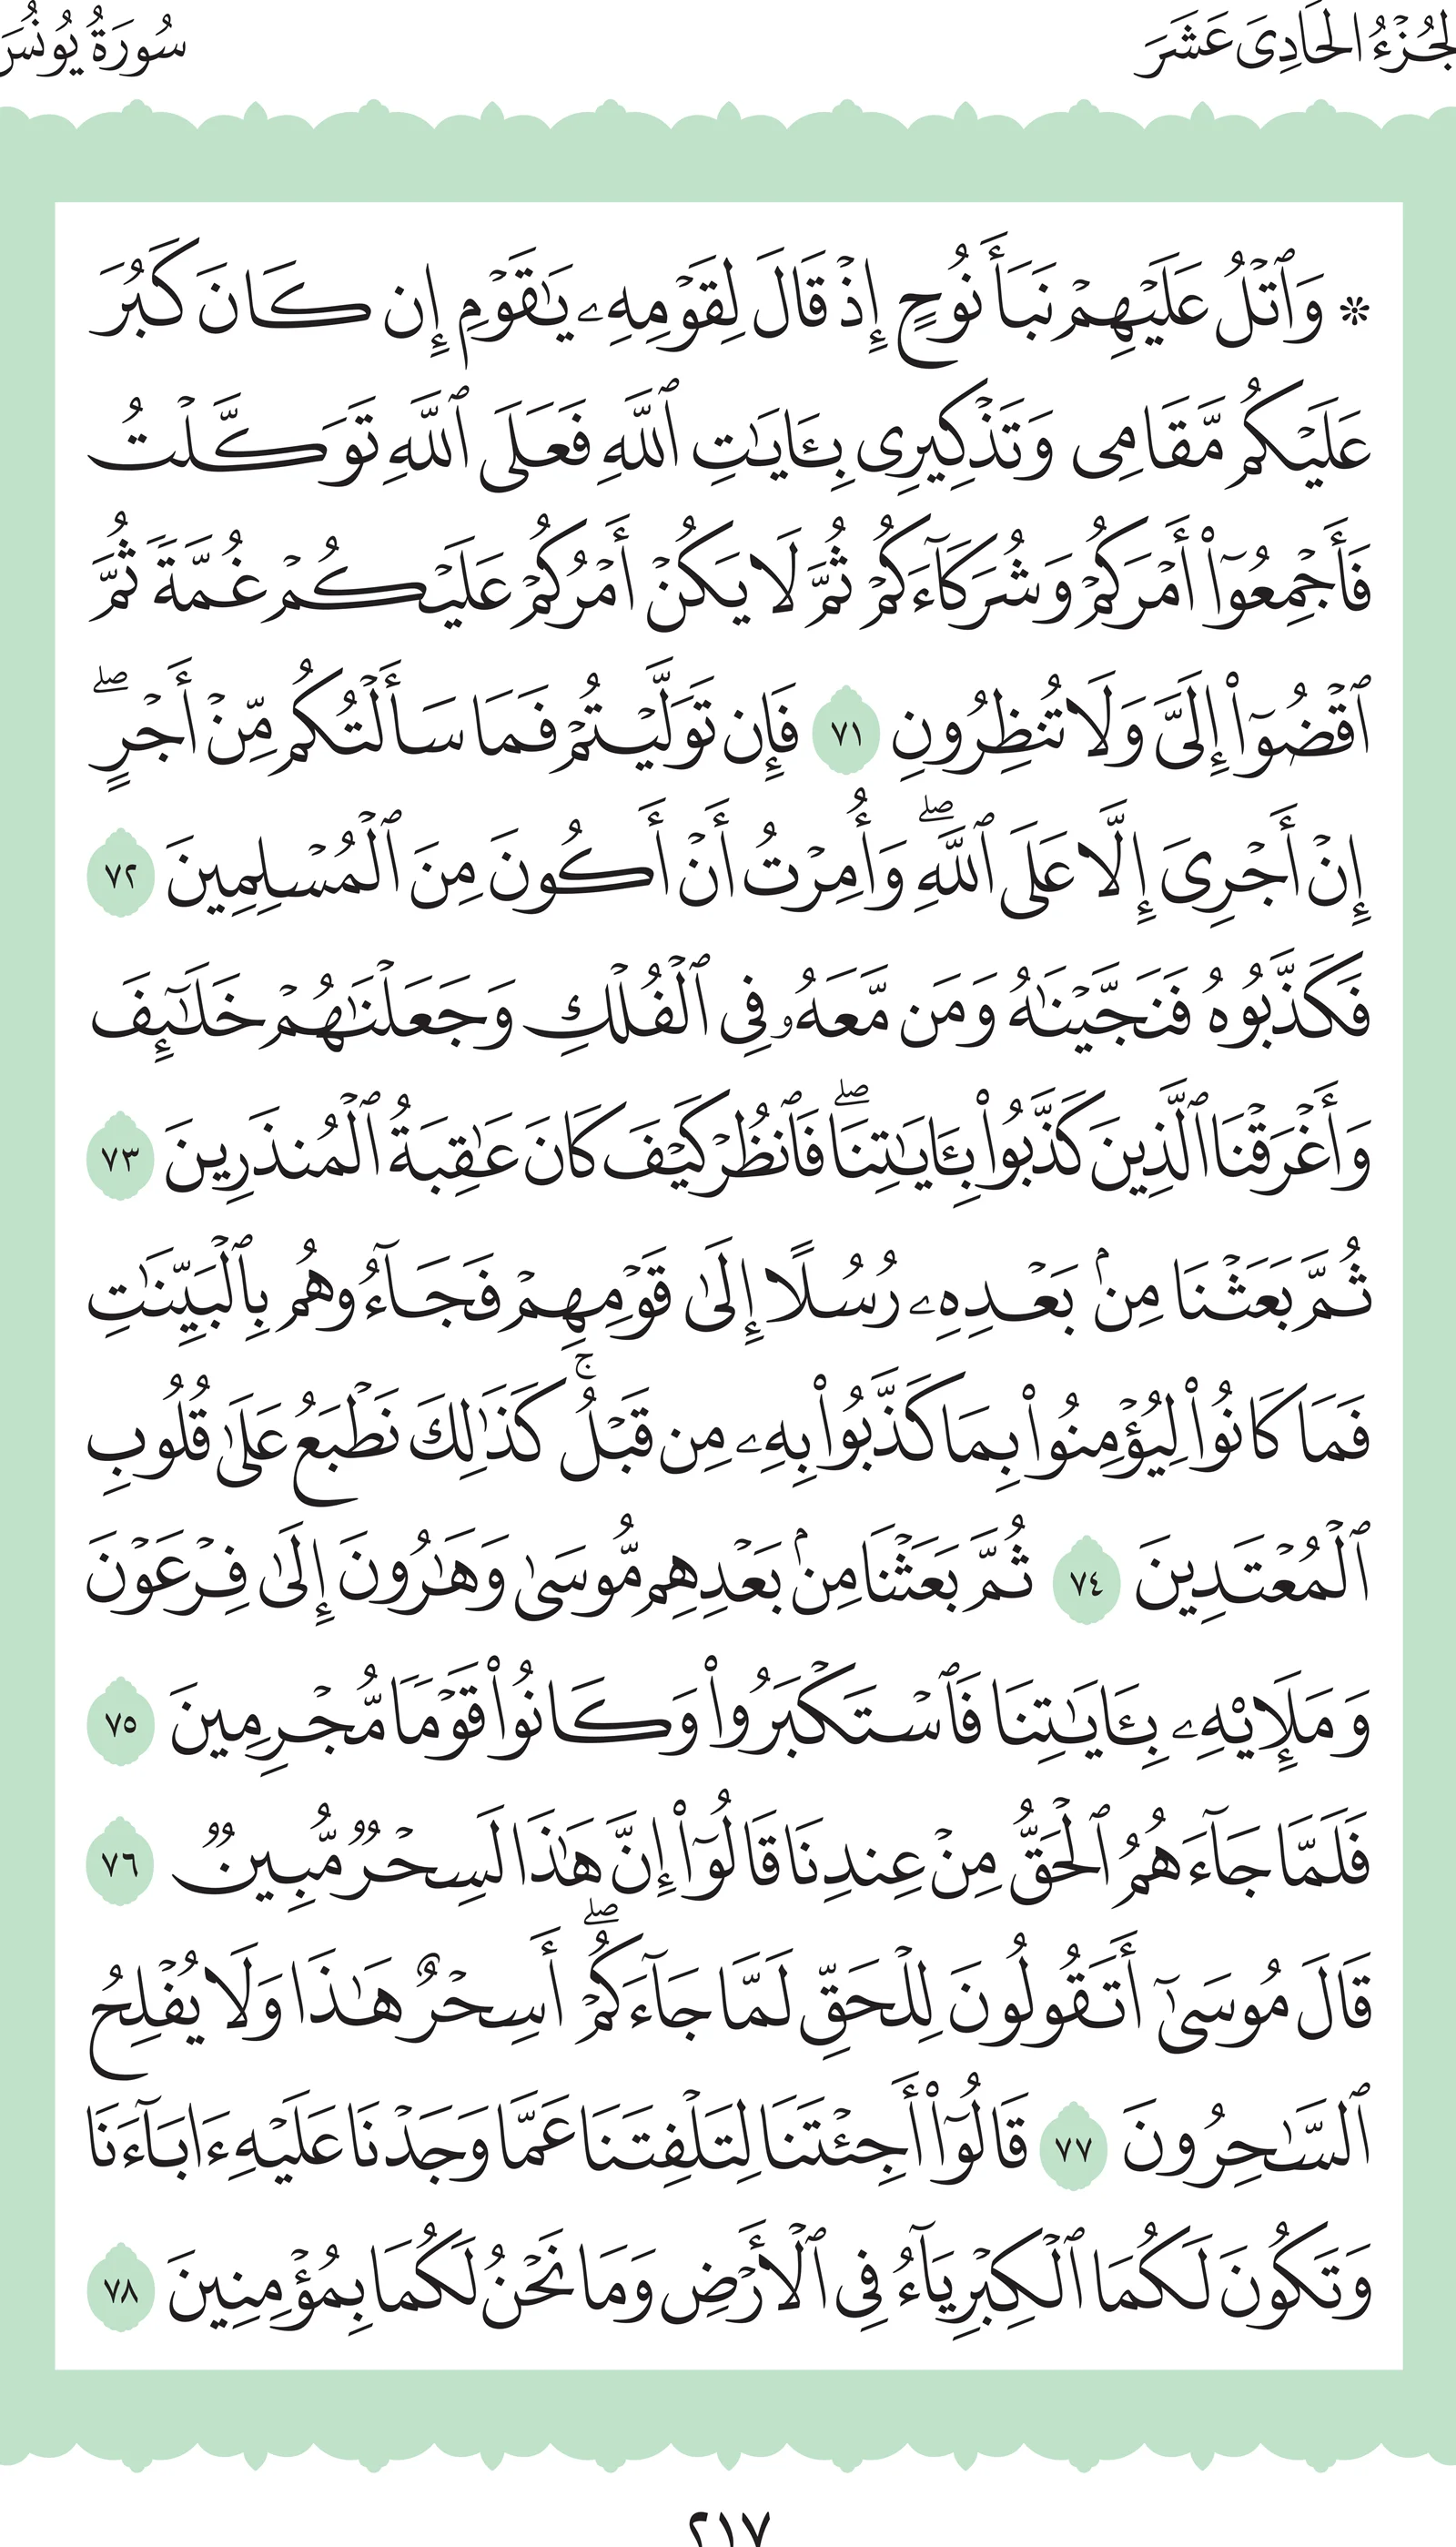 الجُزْءُ الحَادِىَ عَشَرَ
سُورَةُ يُونُسَ
۞ وَٱتۡلُ عَلَيۡهِمۡ نَبَأَ نُوحٍ إِذۡ قَالَ لِقَوۡمِهِۦ يَٰقَوۡمِ إِن كَانَ كَبُرَ
عَلَيۡكُم مَّقَامِي وَتَذۡكِيرِي بِـَٔايَٰتِ ٱللَّهِ فَعَلَى ٱللَّهِ تَوَكَّلۡتُ
فَأَجۡمِعُوٓاْ أَمۡرَكُمۡ وَشُرَكَآءَكُمۡ ثُمَّ لَا يَكُنۡ أَمۡرُكُمۡ عَلَيۡكُمۡ غُمَّةٗ ثُمَّ
ٱقۡضُوٓاْ إِلَيَّ وَلَا تُنظِرُونِ ٧١ فَإِن تَوَلَّيۡتُمۡ فَمَا سَأَلۡتُكُم مِّنۡ أَجۡرٍۖ
إِنۡ أَجۡرِيَ إِلَّا عَلَى ٱللَّهِۖ وَأُمِرۡتُ أَنۡ أَكُونَ مِنَ ٱلۡمُسۡلِمِينَ ٧٢
فَكَذَّبُوهُ فَنَجَّيۡنَٰهُ وَمَن مَّعَهُۥ فِي ٱلۡفُلۡكِ وَجَعَلۡنَٰهُمۡ خَلَٰٓئِفَ
وَأَغۡرَقۡنَا ٱلَّذِينَ كَذَّبُواْ بِـَٔايَٰتِنَاۖ فَٱنظُرۡ كَيۡفَ كَانَ عَٰقِبَةُ ٱلۡمُنذَرِينَ ٧٣
ثُمَّ بَعَثۡنَا مِنۢ بَعۡدِهِۦ رُسُلًا إِلَىٰ قَوۡمِهِمۡ فَجَآءُوهُم بِٱلۡبَيِّنَٰتِ
فَمَا كَانُواْ لِيُؤۡمِنُواْ بِمَا كَذَّبُواْ بِهِۦ مِن قَبۡلُۚ كَذَٰلِكَ نَطۡبَعُ عَلَىٰ قُلُوبِ
ٱلۡمُعۡتَدِينَ ٧٤ ثُمَّ بَعَثۡنَا مِنۢ بَعۡدِهِم مُّوسَىٰ وَهَٰرُونَ إِلَىٰ فِرۡعَوۡنَ
وَمَلَإِيْهِۦ بِـَٔايَٰتِنَا فَٱسۡتَكۡبَرُواْ وَكَانُواْ قَوۡمٗا مُّجۡرِمِينَ ٧٥
فَلَمَّا جَآءَهُمُ ٱلۡحَقُّ مِنۡ عِندِنَا قَالُوٓاْ إِنَّ هَٰذَا لَسِحۡرٞ مُّبِينٞ ٧٦
قَالَ مُوسَىٰٓ أَتَقُولُونَ لِلۡحَقِّ لَمَّا جَآءَكُمۡۖ أَسِحۡرٌ هَٰذَا وَلَا يُفۡلِحُ
ٱلسَّٰحِرُونَ ٧٧ قَالُوٓاْ أَجِئۡتَنَا لِتَلۡفِتَنَا عَمَّا وَجَدۡنَا عَلَيۡهِ ءَابَآءَنَا
وَتَكُونَ لَكُمَا ٱلۡكِبۡرِيَآءُ فِي ٱلۡأَرۡضِ وَمَا نَحۡنُ لَكُمَا بِمُؤۡمِنِينَ ٧٨
٢١٧